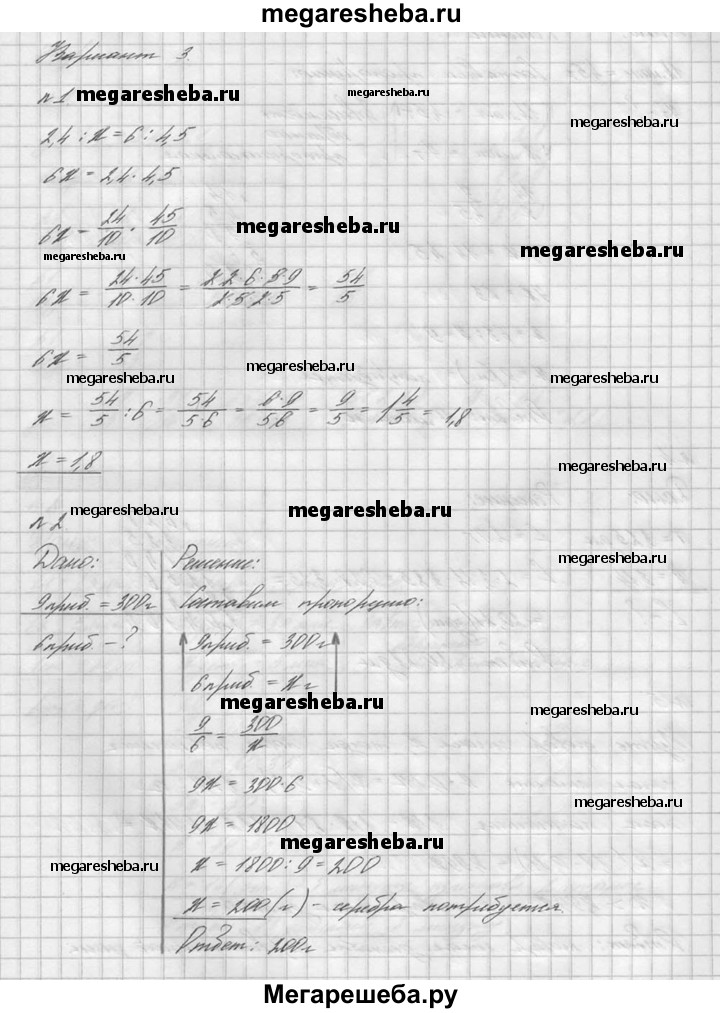 megaresheba.ru
Вариант 3.
№1 megaresheba.ru megaresheba.ru
megaresheba.ru
2,4 : x = 6 : 4,5
6x = 2,4 · 4,5
6x = 24/10 · 45/10 megaresheba.ru
megaresheba.ru megaresheba.ru
6x = 24·45/10·10 = 2·2·6·5·9/2·5·2·5 = 54/5
6x = 54/5
megaresheba.ru megaresheba.ru megaresheba.ru
x = 54/5 : 6 = 54/5·6 = 6·9/5·6 = 9/5 = 1 4/5 = 1,8
x = 1,8 megaresheba.ru
№2 megaresheba.ru megaresheba.ru
Дано: Решение: megaresheba.ru
9приб. = 300г Составим пропорцию:
6приб. – ? 9приб. = 300г
6приб. = x г
megaresheba.ru megaresheba.ru
9/6 = 300/x
9x = 300·6
megaresheba.ru
9x = 1800
megaresheba.ru
megaresheba.ru x = 1800 : 9 = 200
x = 200 (г) – серебра потребуется.
Ответ: 200г
Мегарешеба.ру